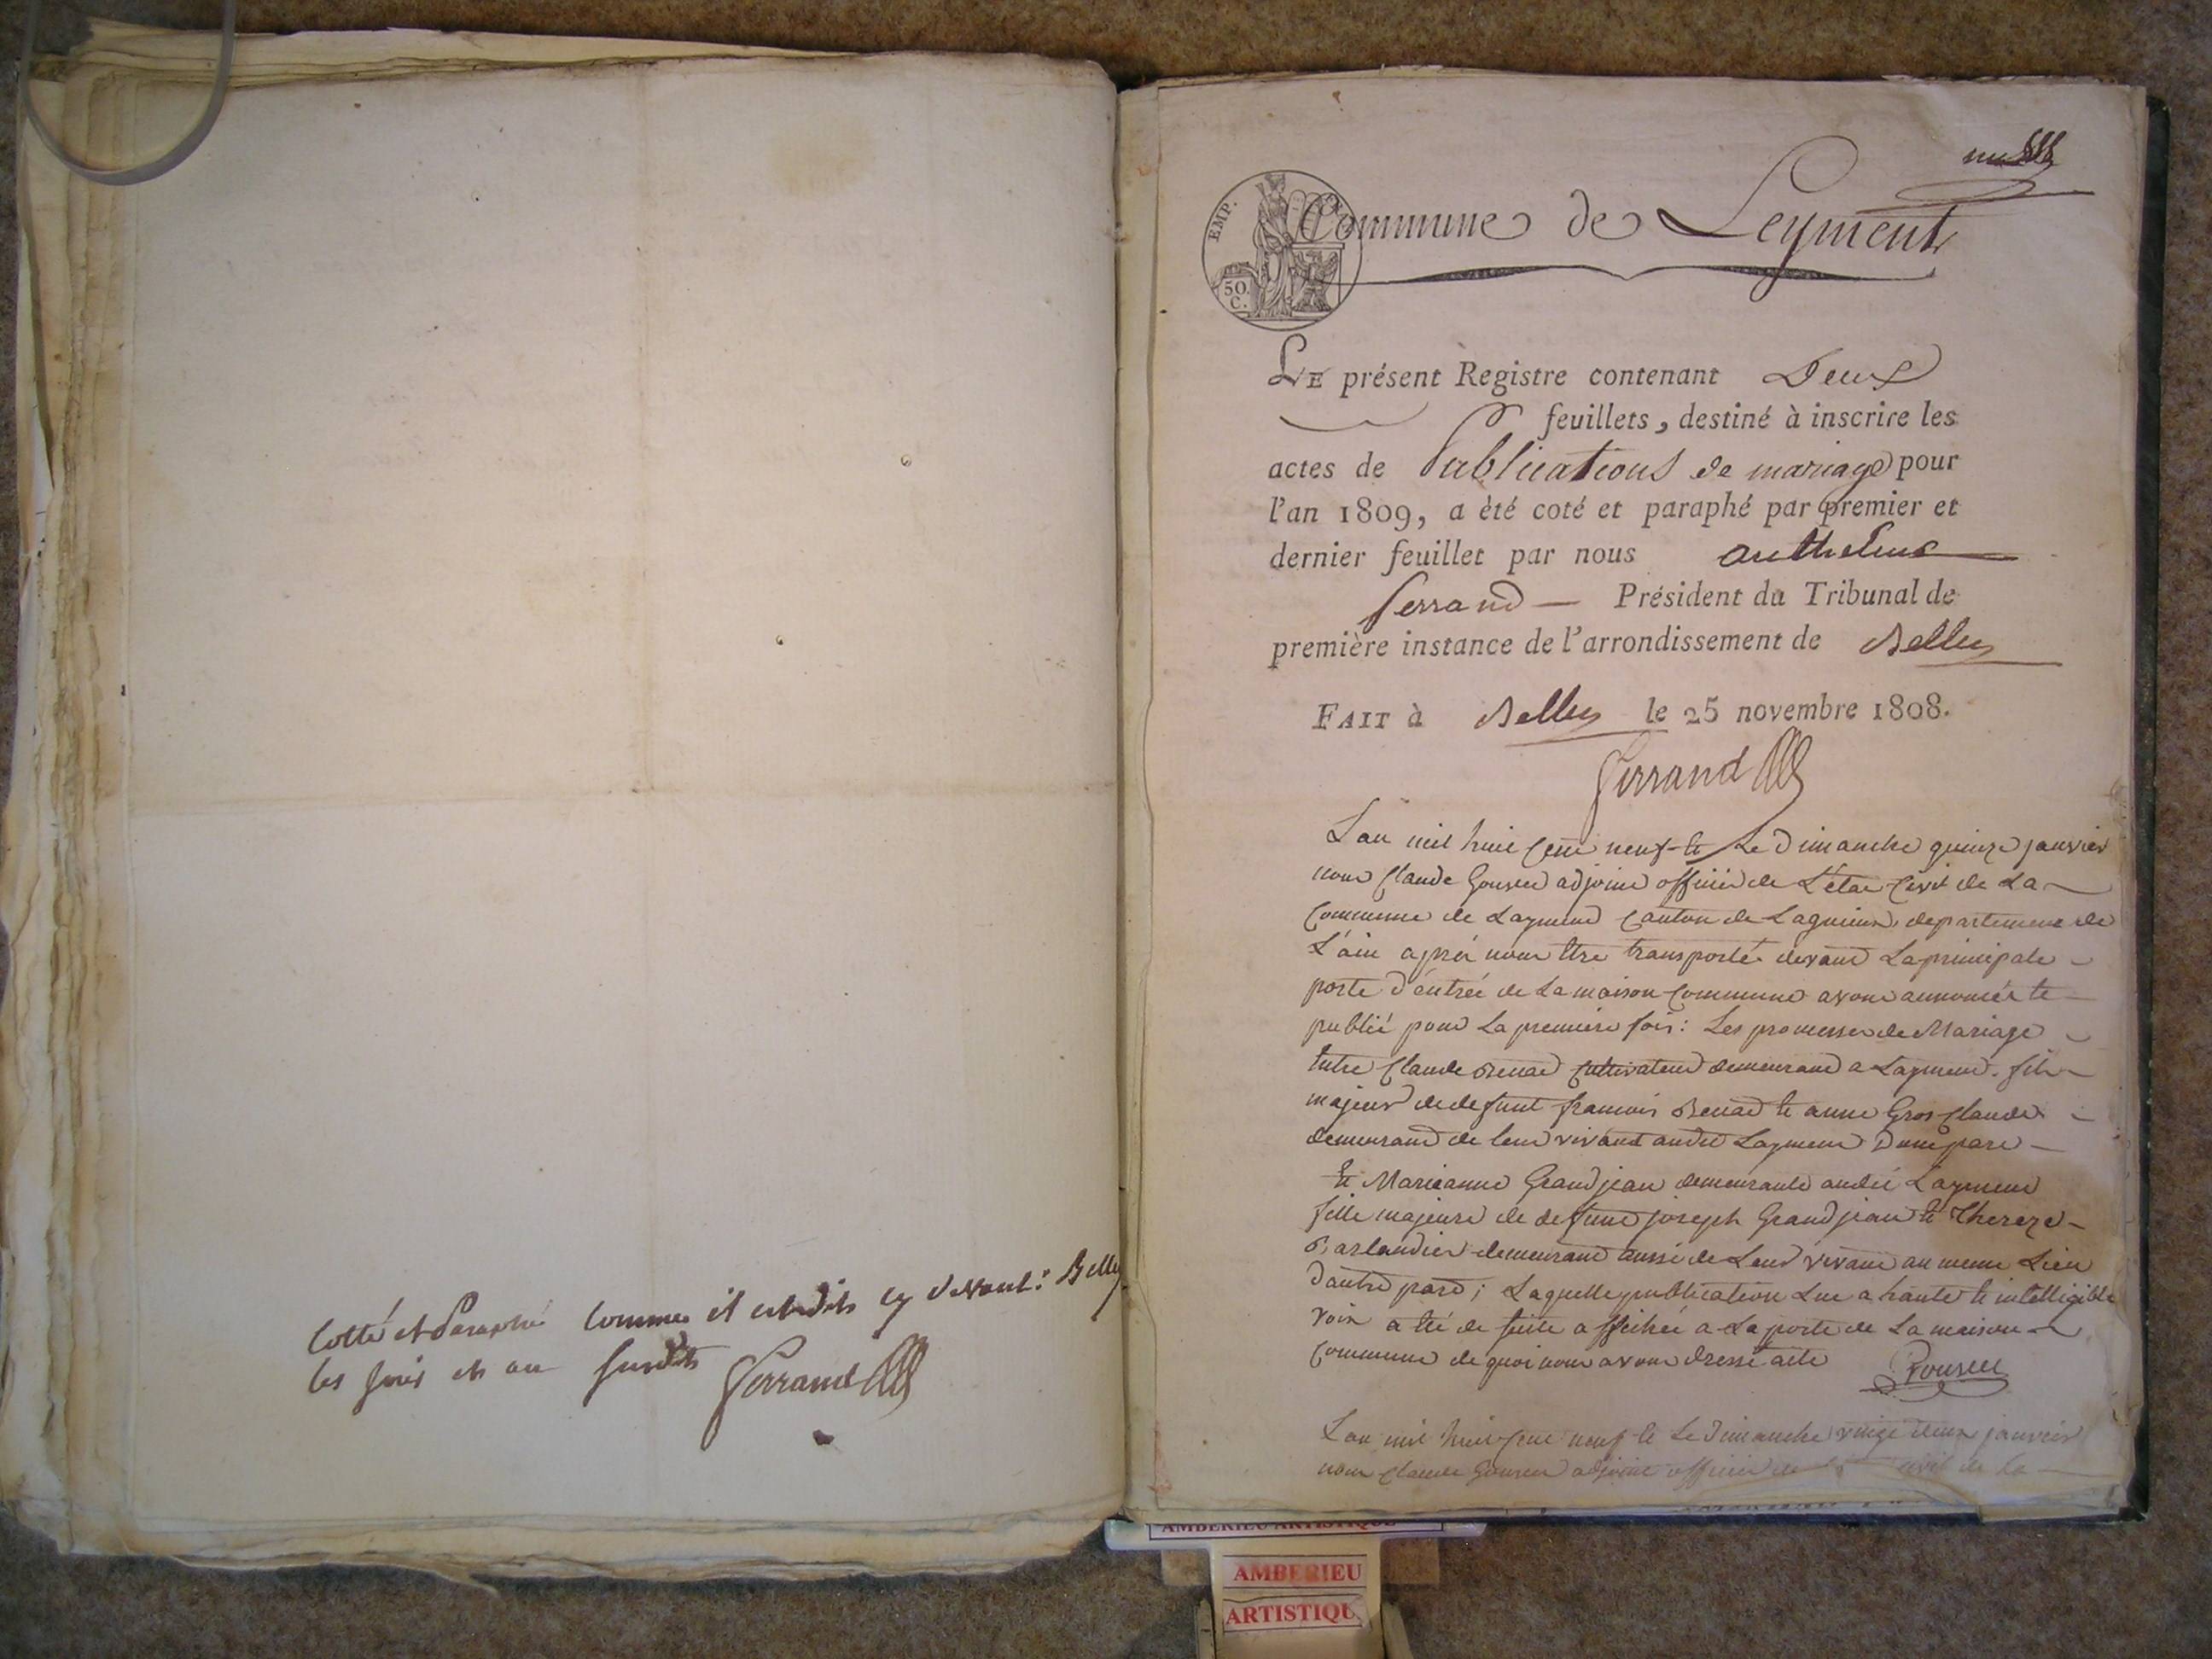 Cotté et Paraphé comme il est dit cy devant : Belley
les jour et an susdits Ferrand
Commune de Leyment
EMP.
50.
C.
LE présent Registre contenant Deux
feuillets, destiné à inscrire les
actes de Publications de mariage pour
l'an 1809, a été coté et paraphé par premier et
dernier feuillet par nous anthelme
ferrand — Président du Tribunal de
première instance de l'arrondissement de Belley
FAIT à Belley le 25 novembre 1808.
Ferrand
L'an mil huit cent neuf et Le Dimanche quinze janvier
nous Claude adjoint officier de L'état Civil de La
Commune de Layment Canton de Lagnieux, departement de
L'ain après nous être transporté devant La principale
porte d'entrée de La maison Commune avons annoncée et
publié pour La premiere fois : Les promesses de Mariage
Entre Claude cultivateur demeurant a Layment. fils
majeur de defunt francois et anne Gros Claude
demeurant de leur vivant audit Layment D'une part
Et Marieanne Grandjean demeurante audit Layment
fille majeure de defunt joseph Grandjean et Thereze
Barlandier demeurant aussi de Leur vivant au meme Lieu
D'autre part ; Laquelle publication Lue a haute et intelligible
voix a été de suite affichée a La porte de La maison
Commune de quoi nous avons dressé acte
L'an mil huit cent neuf et Le Dimanche vingt deux janvier
nous Claude adjoint officier de civil de la
AMBERIEU ARTISTIQUE
AMBERIEU
ARTISTIQU